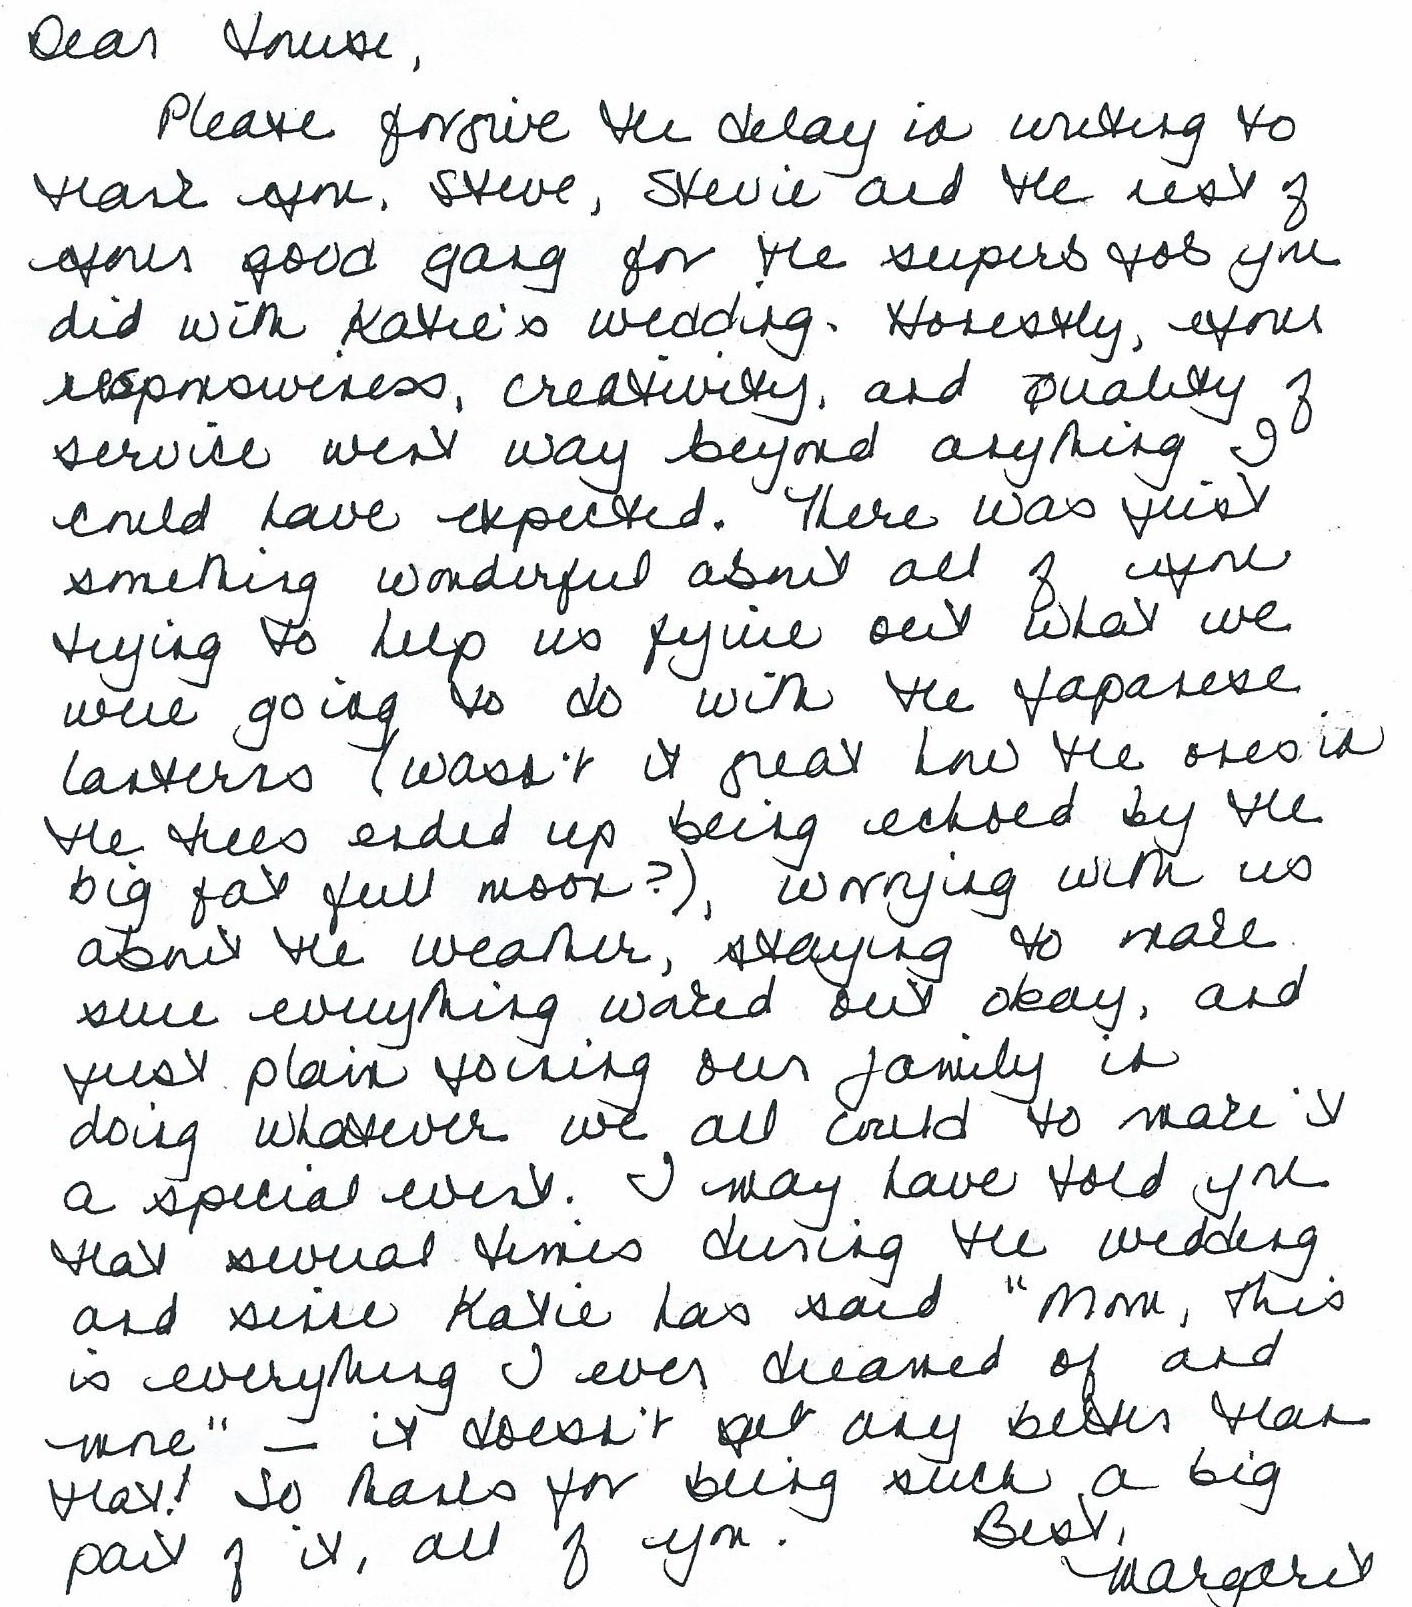 Dear Louise,
Please forgive the delay in writing to
thank you, Steve, Stevie and the rest of
your good gang for the superb job you
did with Katie's wedding. Honestly, your
responsiveness, creativity, and quality of
service went way beyond anything I
could have expected. There was just
something wonderful about all of you
trying to help us figure out what we
were going to do with the Japanese
lanterns (wasn't it great how the ones in
the trees ended up being echoed by the
big fat full moon?), worrying with us
about the weather, staying to make
sure everything worked out okay, and
just plain joining our family in
doing whatever we all could to make it
a special event. I may have told you
that several times during the wedding
and since Katie has said "Mom, this
is everything I ever dreamed of and
more" — it doesn't get any better than
that! So thanks for being such a big
part of it, all of you. Best,
Margaret